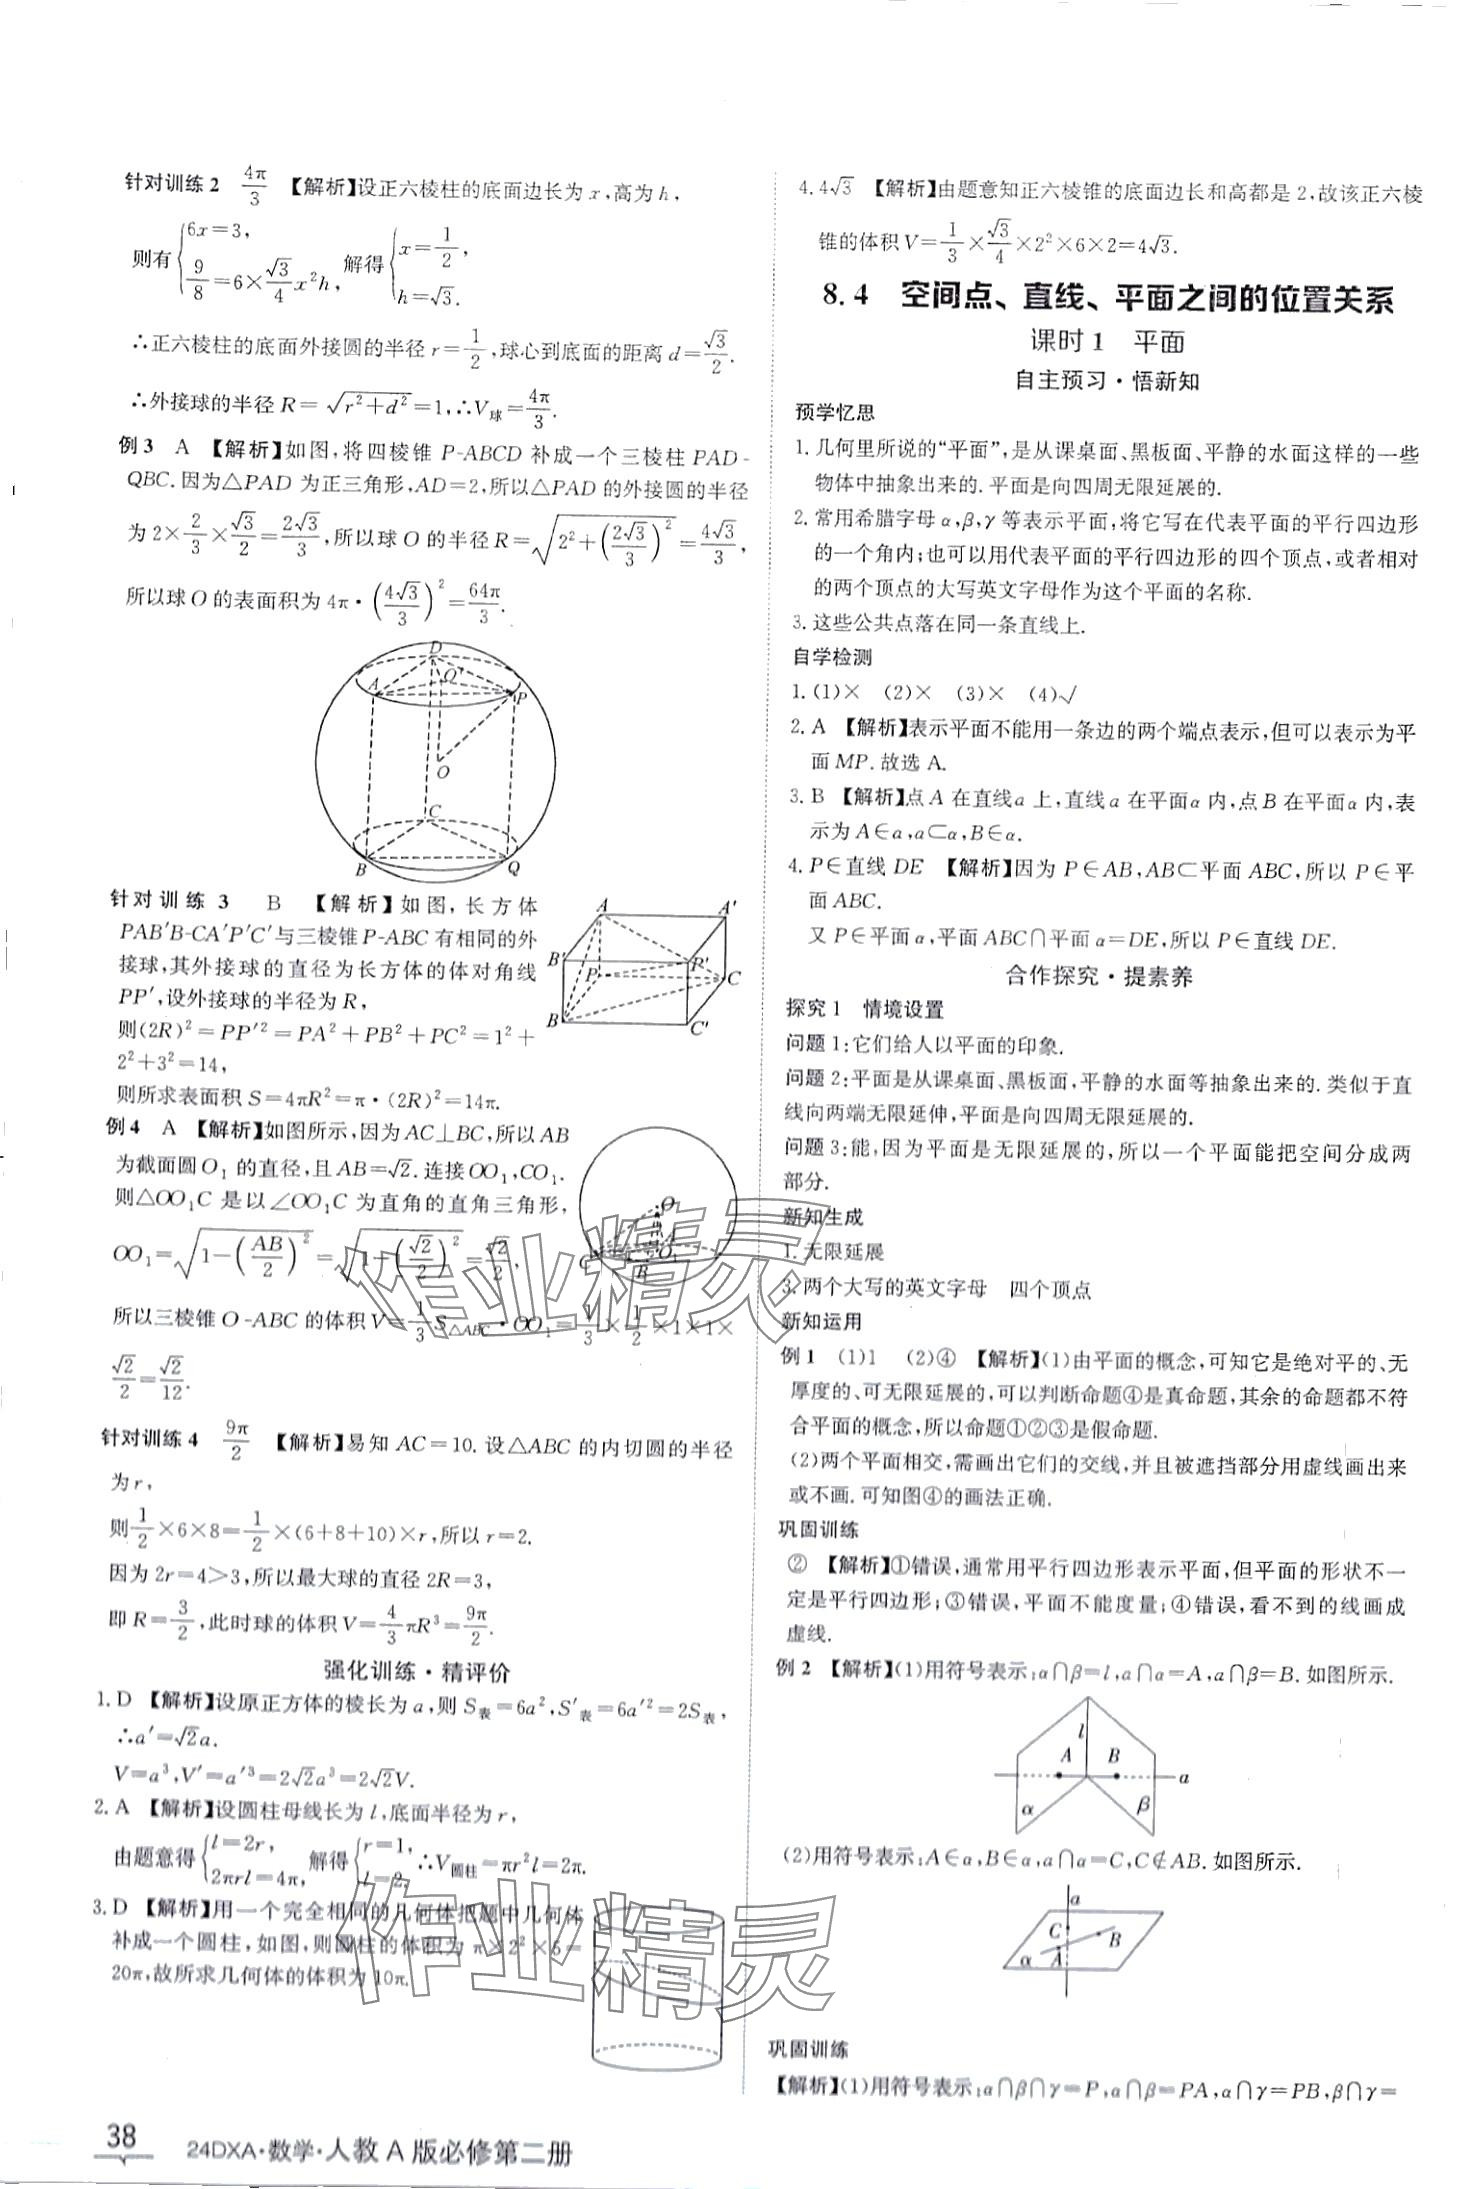 针对训练2　4π/3　【解析】设正六棱柱的底面边长为 x,高为 h,
则有{6x=3, 9/8=6×√3/4 x²h, 解得{x=1/2, h=√3.
∴正六棱柱的底面外接圆的半径 r=1/2,球心到底面的距离 d=√3/2.
∴外接球的半径 R=√(r²+d²)=1,∴V球=4π/3.
例3　A　【解析】如图,将四棱锥 P-ABCD 补成一个三棱柱 PAD-
QBC.因为△PAD 为正三角形,AD=2,所以△PAD 的外接圆的半径
为 2×2/3×√3/2=2√3/3,所以球 O 的半径 R=√(2²+(2√3/3)²)=4√3/3,
所以球 O 的表面积为 4π·(4√3/3)²=64π/3.
D
A
Q'
P
O
C
B
Q
针对训练 3　B　【解析】如图,长方体
PAB'B-CA'P'C'与三棱锥 P-ABC 有相同的外
接球,其外接球的直径为长方体的体对角线
PP',设外接球的半径为 R,
则(2R)²=PP'²=PA²+PB²+PC²=1²+
2²+3²=14,
则所求表面积 S=4πR²=π·(2R)²=14π.
A
A'
B'
P'
P
C
B
C'
例4　A　【解析】如图所示,因为 AC⊥BC,所以 AB
为截面圆 O₁ 的直径,且 AB=√2.连接 OO₁,CO₁.
则△OO₁C 是以∠OO₁C 为直角的直角三角形,
OO₁=√(1-(AB/2)²)=√(1-(√2/2)²)=√2/2,
所以三棱锥 O-ABC 的体积 V=1/3 S△ABC·OO₁=1/3×1/2×1×1×
√2/2=√2/12.
O
A
C
O₁
B
针对训练4　9π/2　【解析】易知 AC=10.设△ABC 的内切圆的半径
为 r,
则1/2×6×8=1/2×(6+8+10)×r,所以 r=2.
因为 2r=4>3,所以最大球的直径 2R=3,
即 R=3/2,此时球的体积 V=4/3 πR³=9π/2.
强化训练·精评价
1. D　【解析】设原正方体的棱长为 a,则 S表=6a²,S'表=6a'²=2S表,
∴a'=√2a.
V=a³,V'=a'³=2√2a³=2√2V.
2. A　【解析】设圆柱母线长为 l,底面半径为 r,
由题意得{l=2r, 2πrl=4π, 解得{r=1, l=2, ∴V圆柱=πr²l=2π.
3. D　【解析】用一个完全相同的几何体把题中几何体
补成一个圆柱,如图,则圆柱的体积为 π×2²×5=
20π,故所求几何体的体积为 10π.
4. 4√3　【解析】由题意知正六棱锥的底面边长和高都是 2,故该正六棱
锥的体积 V=1/3×√3/4×2²×6×2=4√3.
8.4　空间点、直线、平面之间的位置关系
课时1　平面
自主预习·悟新知
预学忆思
1. 几何里所说的“平面”,是从课桌面、黑板面、平静的水面这样的一些
物体中抽象出来的. 平面是向四周无限延展的.
2. 常用希腊字母 α,β,γ 等表示平面,将它写在代表平面的平行四边形
的一个角内;也可以用代表平面的平行四边形的四个顶点,或者相对
的两个顶点的大写英文字母作为这个平面的名称.
3. 这些公共点落在同一条直线上.
自学检测
1. (1)×　(2)×　(3)×　(4)√
2. A　【解析】表示平面不能用一条边的两个端点表示,但可以表示为平
面 MP.故选 A.
3. B　【解析】点 A 在直线 a 上,直线 a 在平面 α 内,点 B 在平面 α 内,表
示为 A∈a,a⊂α,B∈α.
4. P∈直线 DE　【解析】因为 P∈AB,AB⊂平面 ABC,所以 P∈平
面 ABC.
又 P∈平面 α,平面 ABC∩平面 α=DE,所以 P∈直线 DE.
合作探究·提素养
探究1　情境设置
问题1:它们给人以平面的印象.
问题2:平面是从课桌面、黑板面,平静的水面等抽象出来的. 类似于直
线向两端无限延伸,平面是向四周无限延展的.
问题3:能,因为平面是无限延展的,所以一个平面能把空间分成两
部分.
新知生成
1. 无限延展
3. 两个大写的英文字母　四个顶点
新知运用
例1　(1)1　(2)④　【解析】(1)由平面的概念,可知它是绝对平的、无
厚度的、可无限延展的,可以判断命题④是真命题,其余的命题都不符
合平面的概念,所以命题①②③是假命题.
(2)两个平面相交,需画出它们的交线,并且被遮挡部分用虚线画出来
或不画.可知图④的画法正确.
巩固训练
②　【解析】①错误,通常用平行四边形表示平面,但平面的形状不一
定是平行四边形;③错误,平面不能度量;④错误,看不到的线画成
虚线.
例2　【解析】(1)用符号表示:α∩β=l,a∩α=A,a∩β=B. 如图所示.
l
A
B
a
α
β
(2)用符号表示:A∈α,B∈α,a∩α=C,C∉AB. 如图所示.
a
C
B
A
α
巩固训练
【解析】(1)用符号表示:α∩β∩γ=P,α∩β=PA,α∩γ=PB,β∩γ=
38
24DXA·数学·人教 A 版必修第二册
作业精灵
作业精灵